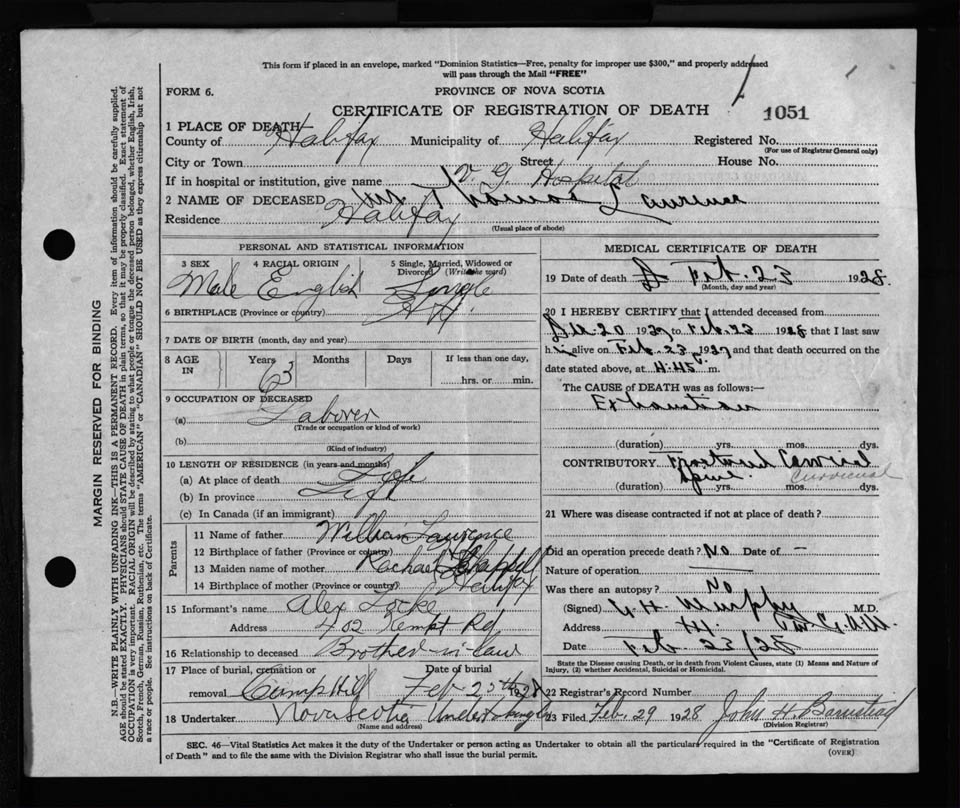 This form if placed in an envelope, marked "Dominion Statistics—Free, penalty for improper use $300," and properly addressed
will pass through the Mail "FREE"
FORM 6.
PROVINCE OF NOVA SCOTIA
CERTIFICATE OF REGISTRATION OF DEATH
1051
1 PLACE OF DEATH
County of Halifax Municipality of Halifax Registered No.
(For use of Registrar General only)
City or Town Street House No.
If in hospital or institution, give name V. G. Hospital
2 NAME OF DECEASED Thomas Laurence
Residence Halifax
(Usual place of abode)
PERSONAL AND STATISTICAL INFORMATION
3 SEX 4 RACIAL ORIGIN 5 Single, Married, Widowed or Divorced (Write the word)
Male English Single
6 BIRTHPLACE (Province or country)
7 DATE OF BIRTH (month, day and year)
8 AGE IN Years Months Days If less than one day,
63 hrs. or min.
9 OCCUPATION OF DECEASED
(a) Laborer
(Trade or occupation or kind of work)
(b)
(Kind of industry)
10 LENGTH OF RESIDENCE (in years and months)
(a) At place of death Life
(b) In province Life
(c) In Canada (if an immigrant)
Parents
11 Name of father William Lawrence
12 Birthplace of father (Province or country)
13 Maiden name of mother Rachael Chappell
14 Birthplace of mother (Province or country) Halifax
15 Informant's name Alex Locke
Address 402 Kempt Rd
16 Relationship to deceased Brother-in-law
17 Place of burial, cremation or removal Camp Hill Date of burial Feb 25th 1928
18 Undertaker Nova Scotia Undertaking Co
(Name and address)
MEDICAL CERTIFICATE OF DEATH
19 Date of death Feb. 23 1928.
(Month, day and year)
20 I HEREBY CERTIFY that I attended deceased from
Dec. 20 1927 to Feb. 23 1928 that I last saw
him alive on Feb. 23 1927 and that death occurred on the
date stated above, at 4.45 m.
The CAUSE OF DEATH was as follows:—
Exhaustion
(duration) yrs. mos. dys.
CONTRIBUTORY Fractured Cervical
Spine. Cervical
(duration) yrs. mos. dys.
21 Where was disease contracted if not at place of death?
Did an operation precede death? No Date of –
Nature of operation
Was there an autopsy? No
(Signed) Murphy M.D.
Address
Date Feb 23/28
State the Disease causing Death, or in death from Violent Causes, state (1) Means and Nature of
Injury, (2) whether Accidental, Suicidal or Homicidal.
22 Registrar's Record Number
23 Filed Feb. 29 1928 John H. Barnstead
(Division Registrar)
SEC. 46—Vital Statistics Act makes it the duty of the Undertaker or person acting as Undertaker to obtain all the particulars required in the "Certificate of Registration
of Death" and to file the same with the Division Registrar who shall issue the burial permit.
(OVER)
MARGIN RESERVED FOR BINDING
N.B.—WRITE PLAINLY WITH UNFADING INK—THIS IS A PERMANENT RECORD. Every item of information should be carefully supplied.
AGE should be stated EXACTLY. PHYSICIANS should STATE CAUSE OF DEATH in plain terms, so that it may be properly classified. Exact statement of
OCCUPATION is very important. RACIAL ORIGIN will be described by stating to what people or tongue the deceased person belonged, whether English, Irish,
Scotch, French, German, Russian, Ruthenian, etc. The terms "AMERICAN" or "CANADIAN" SHOULD NOT BE USED as they express citizenship but not
a race or people. See instructions on back of Certificate.